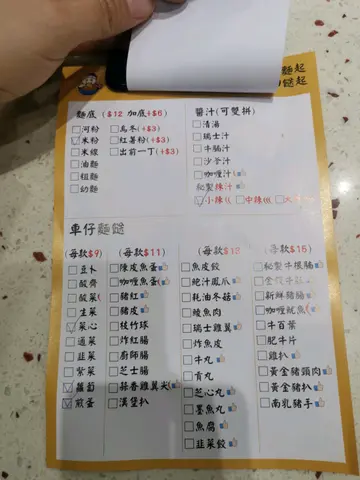 麵起
餸起
麵底 ($12 加底+$6)
河粉 烏冬(+$3)
米粉 紅薯粉(+$3)
米線 出前一丁(+$3)
油麵
粗麵
幼麵
醬汁(可雙拼)
清湯
瑞士汁
牛腩汁
沙爹汁
咖喱汁
秘製辣汁
小辣 中辣 大
車仔麵餸
(每款$9)
豆卜
酸齋
酸菜
生菜
菜心
通菜
韭菜
紫菜
蘿蔔
煎蛋
(每款$11)
陳皮魚蛋
咖喱魚蛋
豬紅
豬皮
枝竹球
炸紅腸
廚師腸
芝士腸
蒜香雞翼尖
漢堡扒
(每款$13
魚皮餃
鮑汁鳳爪
耗油冬菇
鯪魚肉
瑞士雞翼
炸魚皮
牛丸
貢丸
芝心丸
墨魚丸
魚腐
韭菜餃
(每款$16)
秘製牛根腩
新鮮豬腸
咖喱魷魚
牛百葉
肥牛片
雞扒
黃金豬頸肉
黃金豬扒
南乳豬手